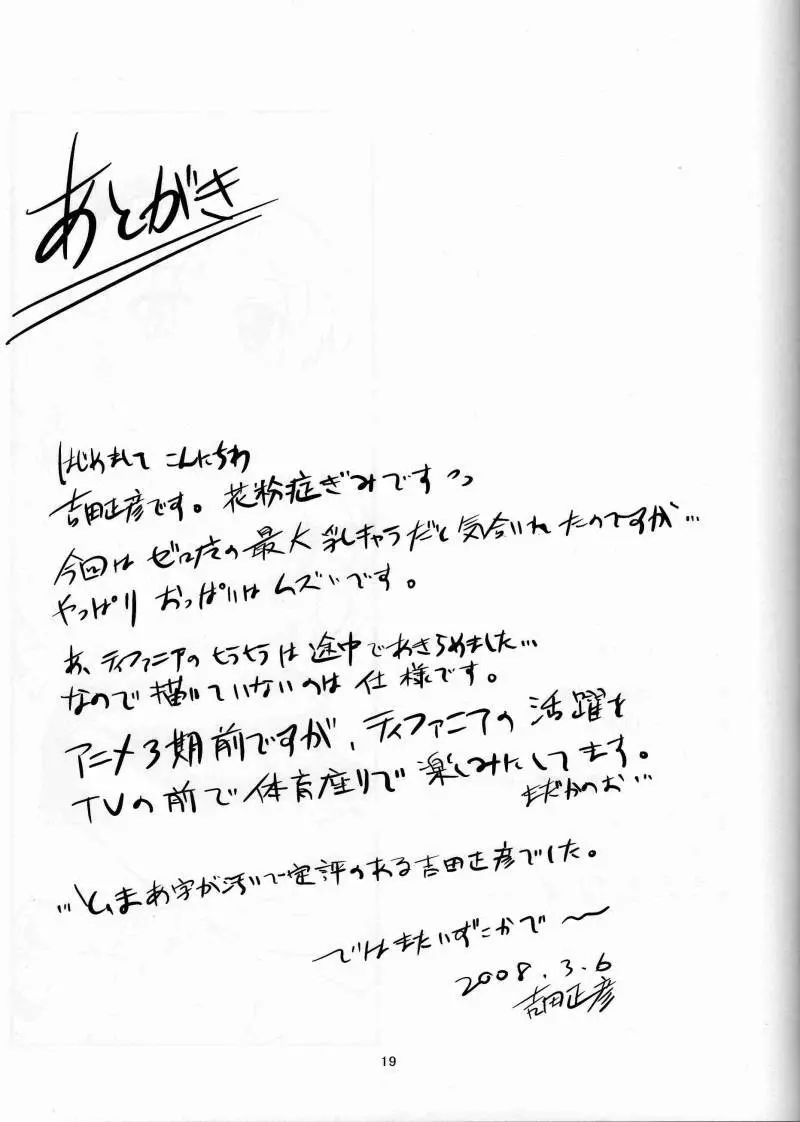 あとがき
はじめまして こんにちわ
吉田正彦です。花粉症ぎみです
今回は ゼロ魔の最大乳キャラだと気合いれたのですが…
やっぱり おっぱいは ムズいです。
あ、ティファニアの ヒラヒラは 途中であきらめました…
なので 描いていないのは 仕様です。
アニメ3期前ですが、ティファニアの 活躍を
TVの前で体育座りで 楽しみにしてます。
まだかのお…
…と、まあ字が汚いで定評のある吉田正彦でした。
ではまたいずこかで〜
2008.3.6
吉田正彦
19